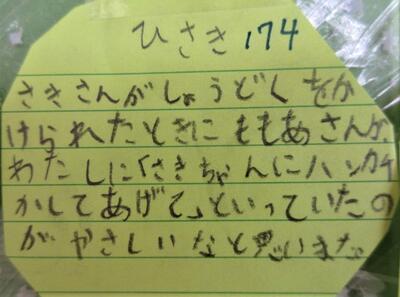 ひさき 174
さきさんがしょうどくをか
けられたときにももあさんが、
わたしに「さきちゃんにハンカチ
かしてあげて」といっていたの
がやさしいなと思いました